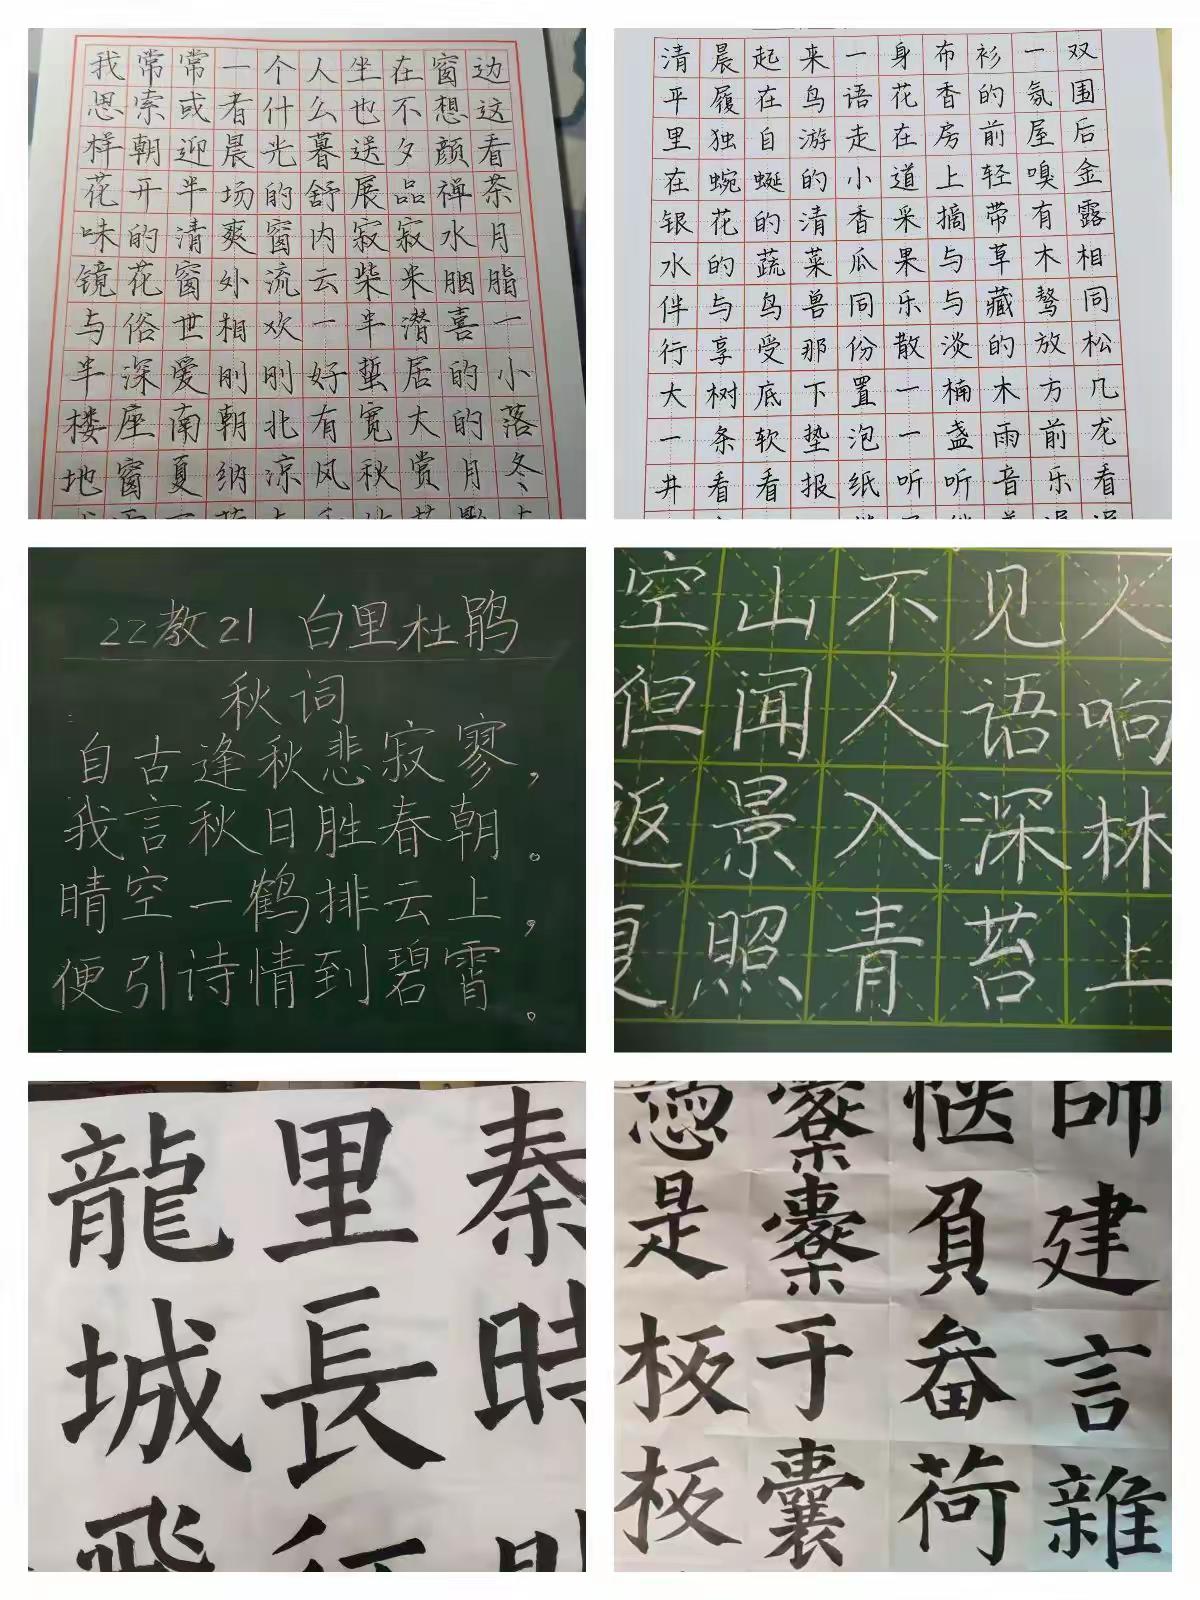 我常常一个人坐在窗边
思索或者什么也不想这
样朝迎晨光暮送夕颜看
花开半场的舒展品禅茶
味的清爽窗内寂寂水月
镜花窗外流云柴米胭脂
与俗世相欢一半潜喜一
半深爱刚刚好蜇居的小
楼座南朝北有宽大的落
地窗夏纳凉风秋赏月冬
清晨起来一身布衫一双
平履在鸟语花香的氛围
里独自游走在房前屋后
在蜿蜒的小道上轻嗅金
银花的清香采摘带有露
水的蔬菜瓜果与草木相
伴与鸟兽同乐与藏鹜同
行享受那份散淡的放松
大树底下置一楠木方几
一条软垫泡一盏雨前龙
井看看报纸听听音乐看
22教21 白里杜鹃
秋词
自古逢秋悲寂寥，
我言秋日胜春朝。
晴空一鹤排云上，
便引诗情到碧霄。
空山不见人
但闻人语响
返景入深林
复照青苔上
秦時
里長行
龍城飛
師建言雜
惬負畚荷
橐于囊
是板板